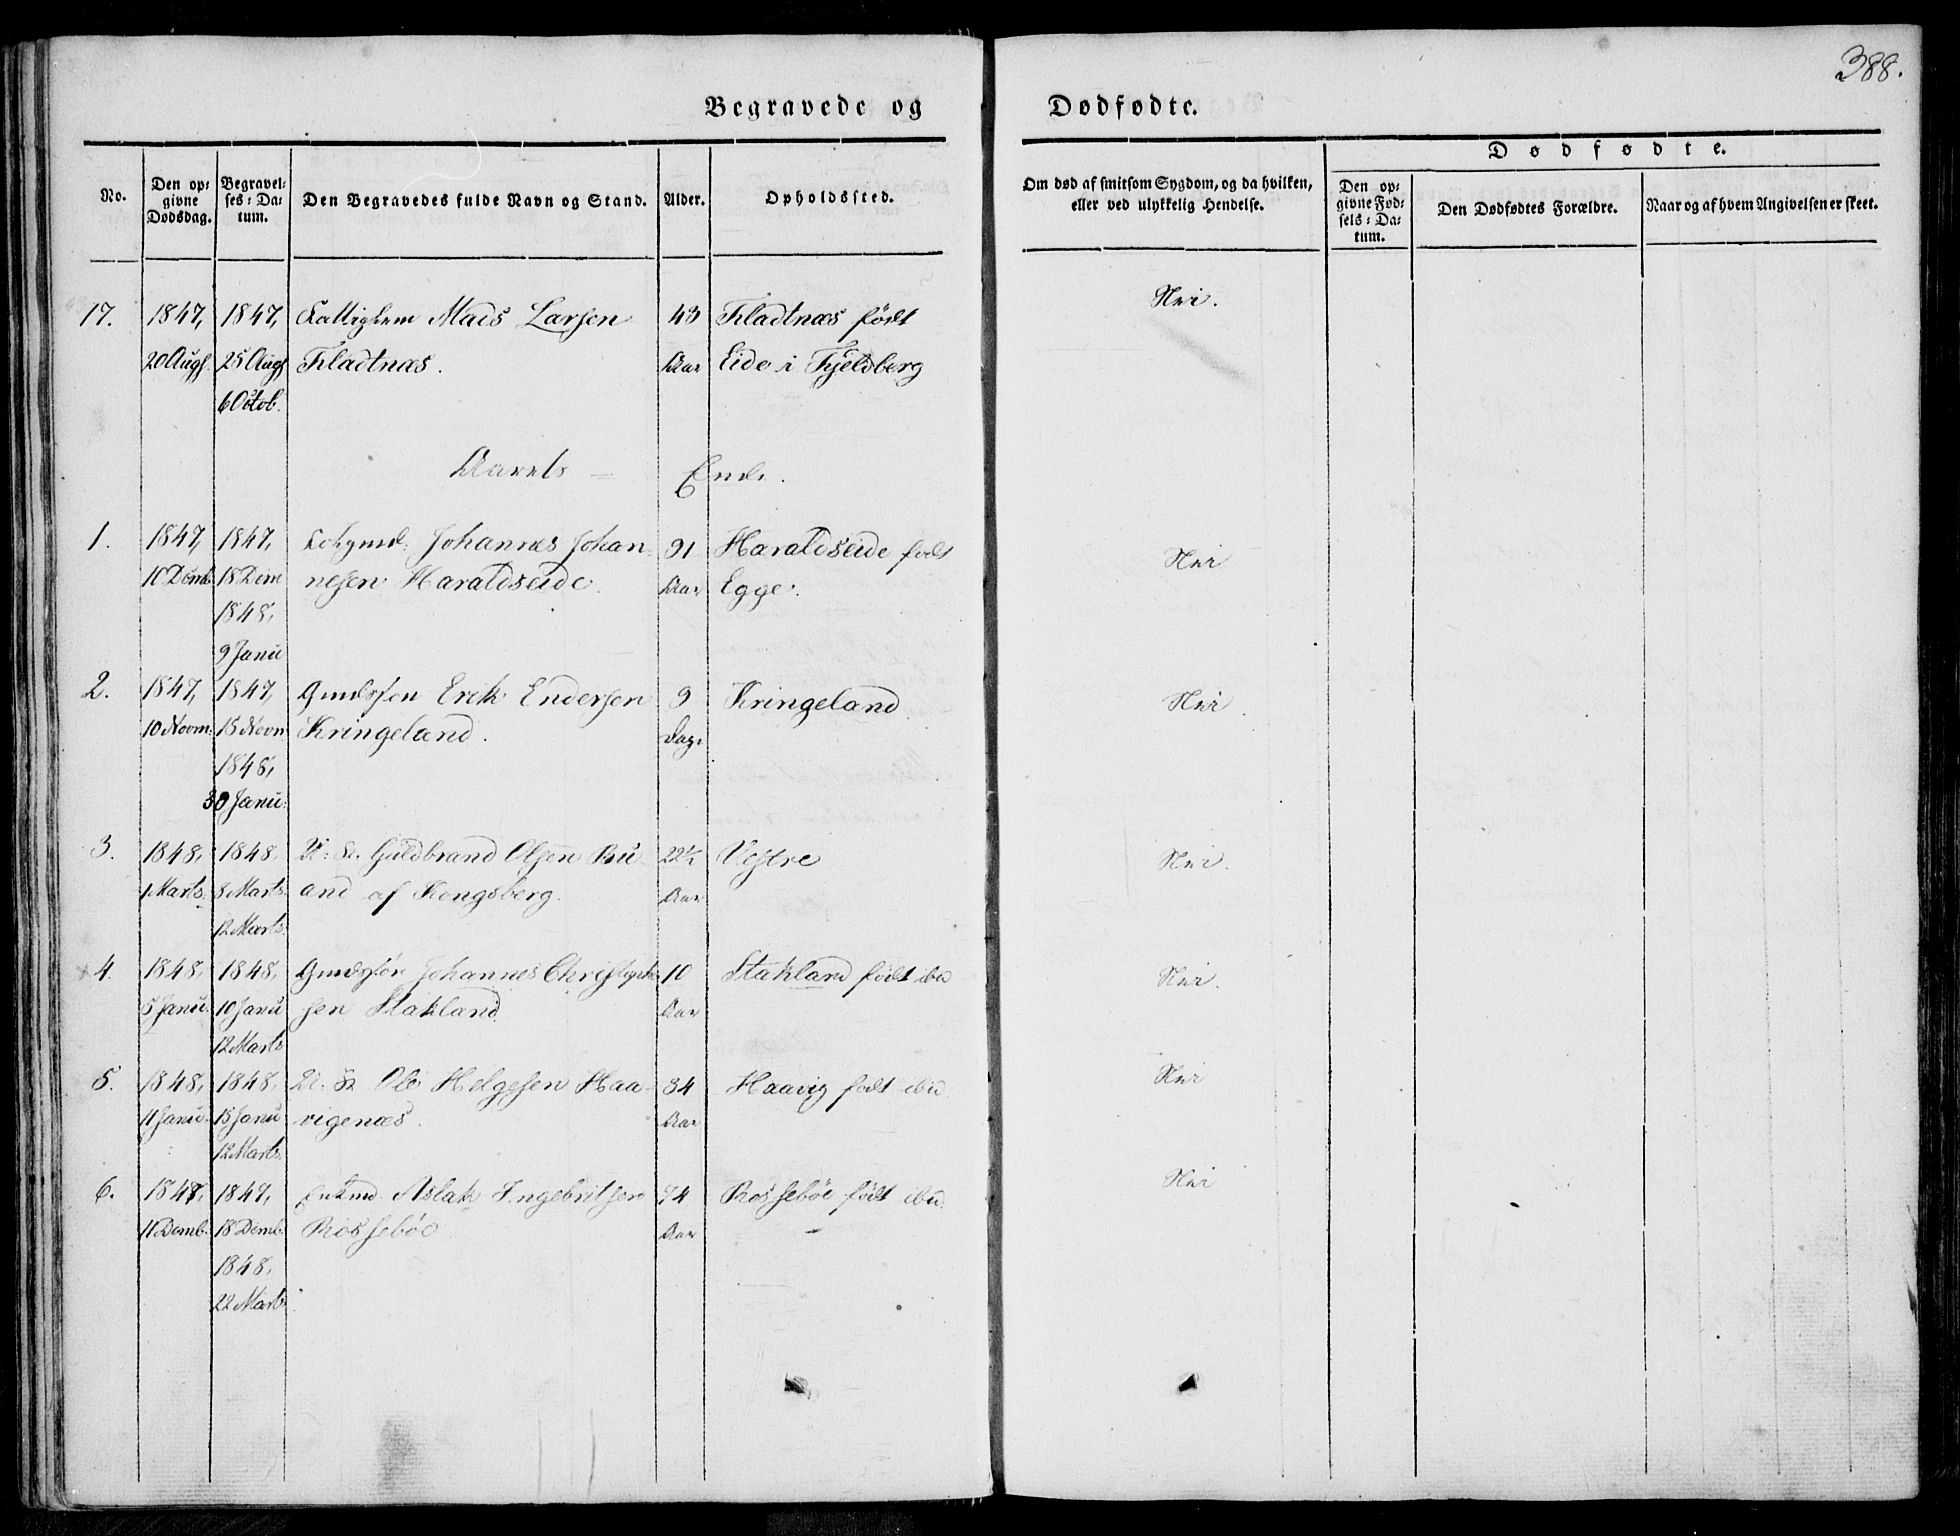 388.
Begravede og Dødfødte.
Dødfødte.
No.
Den opgivne Dødsdag.
Begravelses-Datum.
Den Begravedes fulde Navn og Stand.
Alder.
Opholdssted.
Om død af smitsom Sygdom, og da hvilken, eller ved ulykkelig Hendelse.
Den opgivne Fødsels-Datum.
Den Dødfødtes Forældre.
Naar og af hvem Angivelsen er skeet.
17. 1847, 1847, Mads Larsen 43 Fladtnæs født Nei.
20 Augs. 25 Augs Fladtnæs. Aar Eide i Fjeldberg
6 Octob.
Aarets — Ende.
1. 1847, 1847, Johannes Johan- 91 Haraldseide født Nei
18 Dem nesen Haraldseide. Aar Egge.
1848,
9 Janu
2. 1847, 1847, Erik Endersen 9 Kringeland Nei.
10 Novm. 15 Novn Kringeland. Dage
1848,
30 Janu.
3. 1848, 1848, Guldbrand Olsen Ru- 22½ Vestre Nei.
1 Marts. 8 Marts. and af Kongsberg. Aar
12 Marts.
4. 1848, 1848, Johannes 10 Stakland født ibd Nei.
5 Janu. 10 Janu sen Stakland. Aar
12 Marts
5. 1848, 1848, Ole Helgesen Haa- 34 Haavig født ibd Nei
11 Janu. 15 Janu vigenæs. Aar
12 Marts.
6. 1847, 1847, Aslak Ingebritsen 74 Rossebøe født ibd. Nei
11 Demb. 18 Demb. Rossebøe. Aar
1848.
22 Marts.